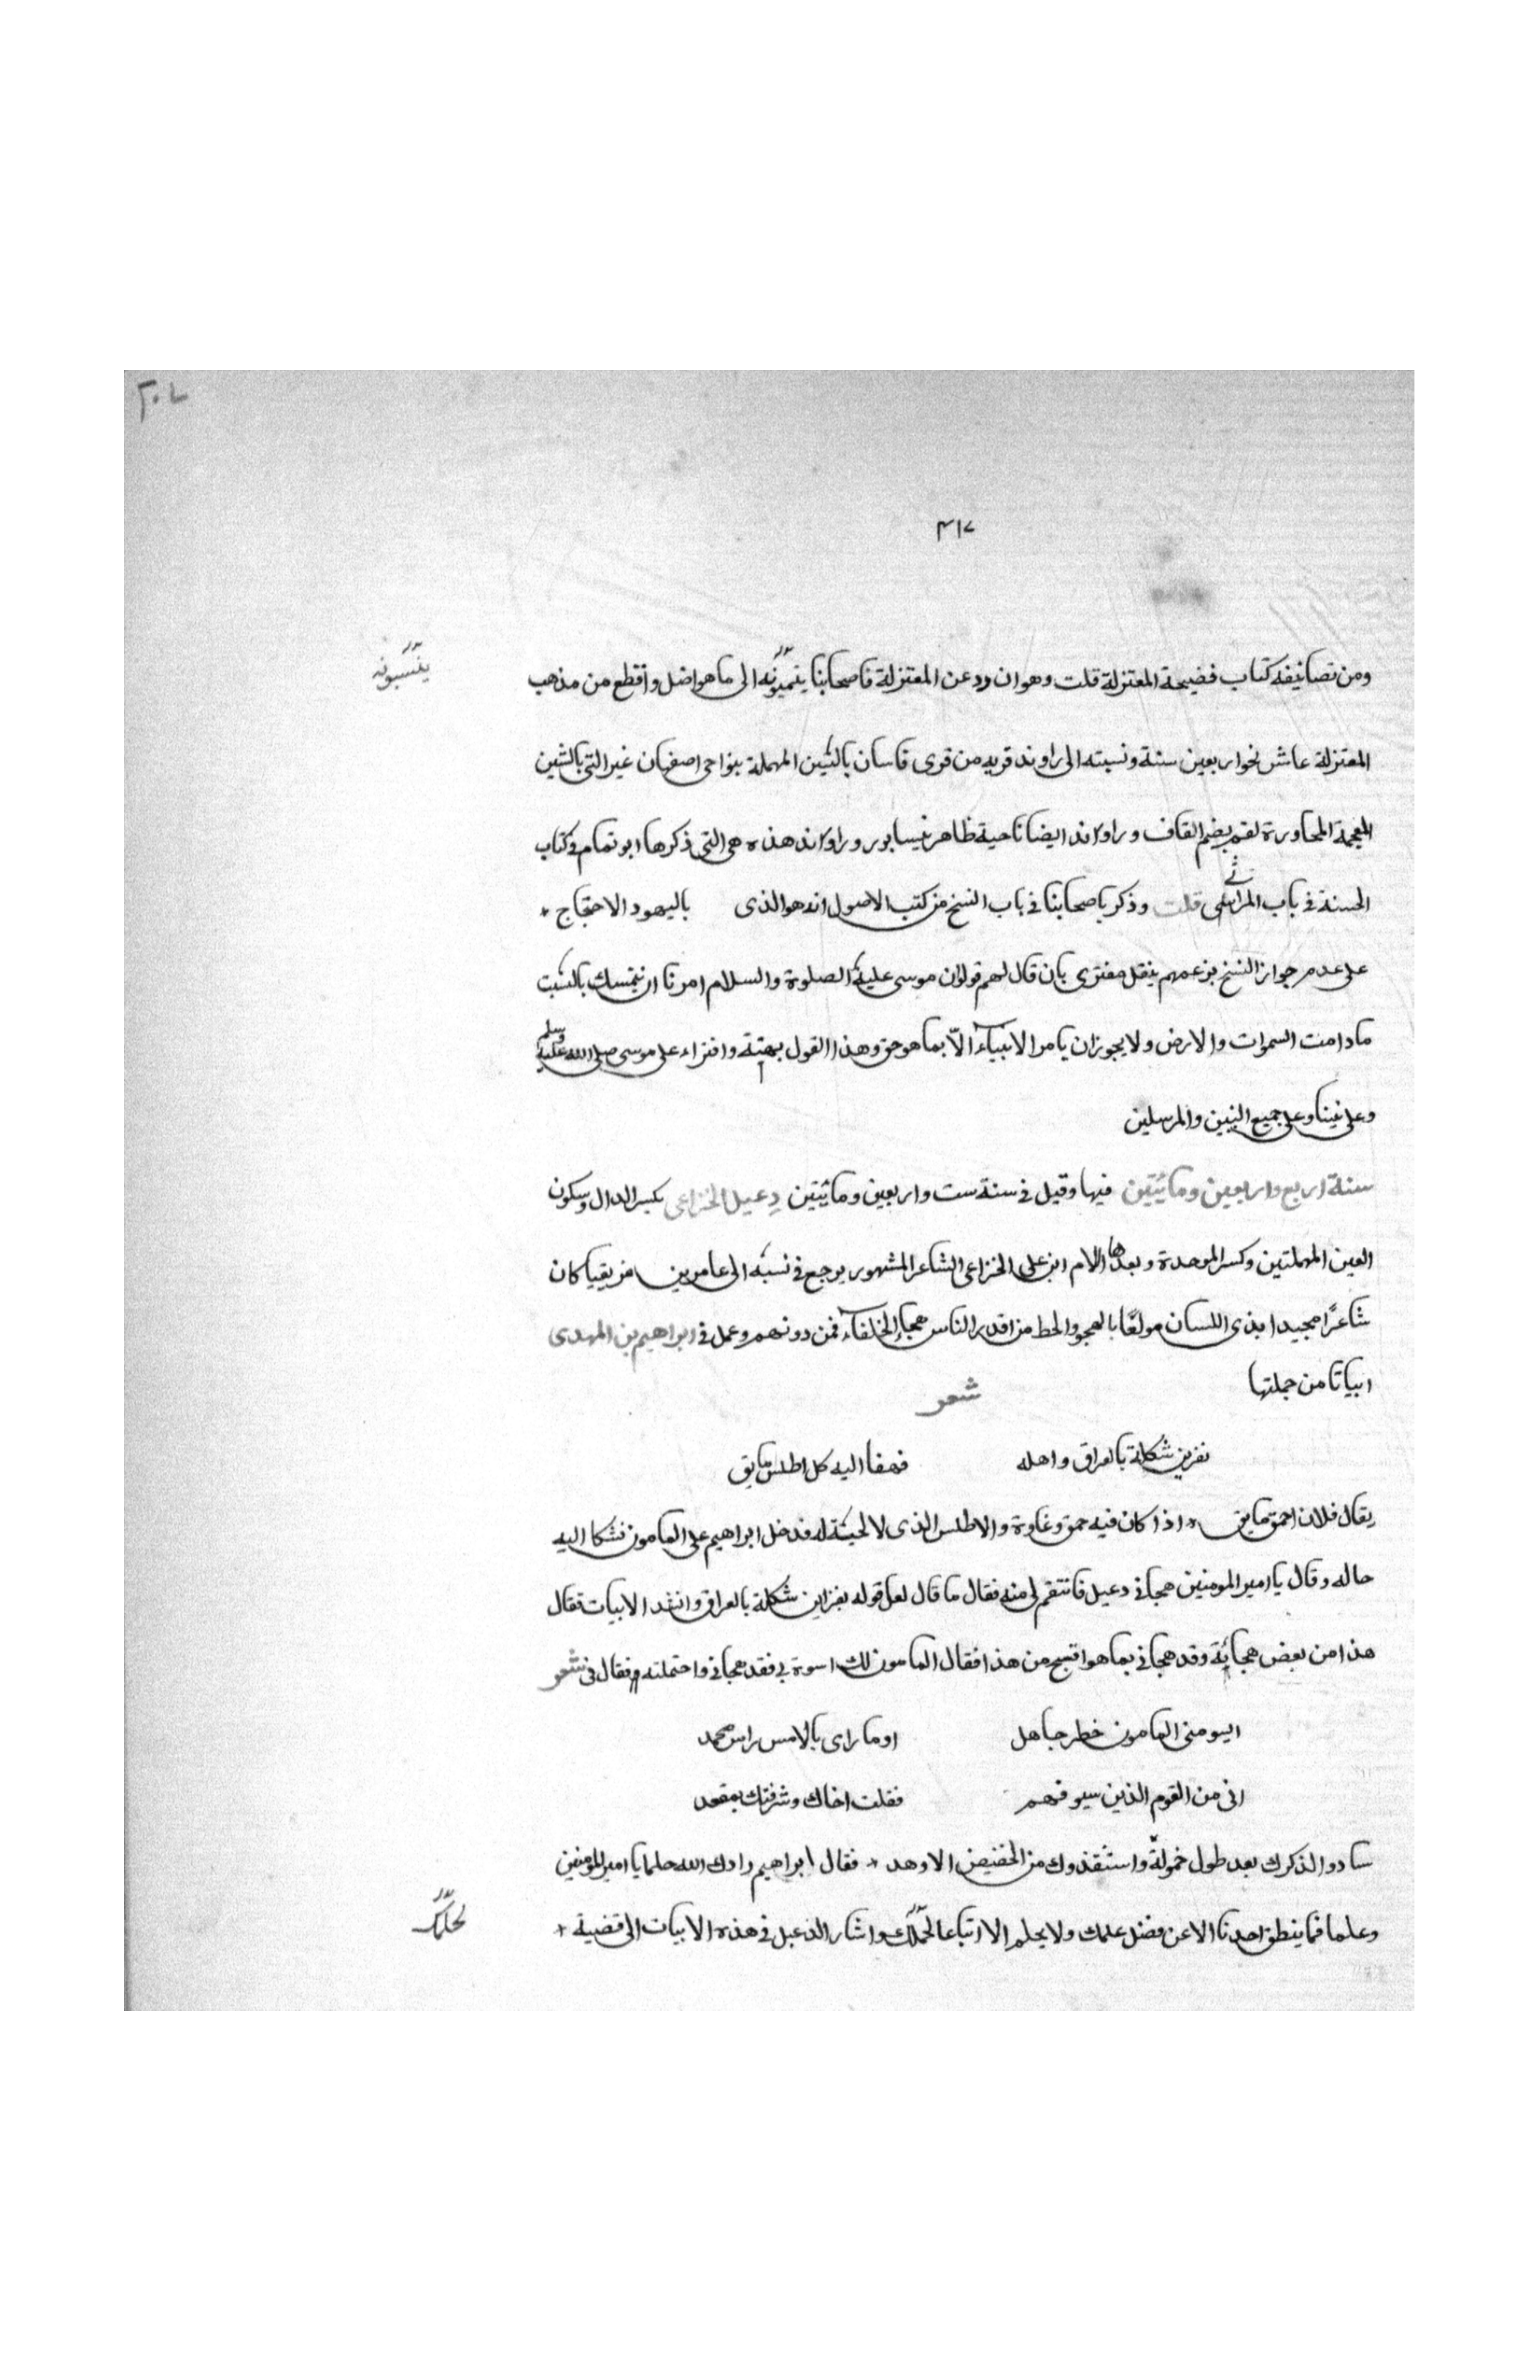 ٢٠٧
٣١٧
ومن تصانيفه كتاب فضيحة المعتزلة قلت وهو ان رد عن المعتزلة فاصحابنا ينميونه الى ما هو اضل وافظع من مذهب
ينسبونه
المعتزلة عاش نحو اربعين سنة ونسبته الى راوند قريه من قرى قاسان بالسين المهملة بنواحى اصفهان غير التى بالشين
المعجمة المجاورة لقم بضم القاف وراوند ايضا ناحية ظاهر نيسابور وراوند هذه هى التى ذكرها ابو تمام فى كتاب
الحسنة فى باب المراثى قلت وذكر اصحابنا فى باب النسخ من كتب الاصول انه هو الذى باليهود الاحتجاج
على عدم جواز النسخ بزعمهم بنقل مفترى بان قال لهم قولوا ان موسى عليه الصلوة والسلام امرنا ان نتمسك بالسبت
مادامت السموات والارض ولا يجوز ان يامر الانبياء الّا بما هو حق وهذا القول بهتة وافتراء على موسى صلى الله عليه وسلم
وعلى نبينا وعلى جميع النبيين والمرسلين
سنة اربع واربعين ومائيتين فيها وقيل فى سنة ست واربعين ومائيتين دعبل الخزاعى بكسر الدال وسكون
العين المهملتين وكسر الموحدة وبعدها اللام ابن على الخزاعى الشاعر المشهور يرجع فى نسبه الى عامر بن مزيقيا كان
شاعرًا مجيدا بذى اللسان مولعًا بالهجو والحط من اقدر الناس هجاء الخلفاء فمن دونهم وعمل فى ابراهيم بن المهدى
ابياتا من جملتها شعر
نفر بن شكلة بالعراق واهله فهفا اليه كل اطلس مايق
يقال فلان احمق مايق اذا كان فيه حمق وغاوة والاطلس الذى لا لحية له فدخل ابراهيم على المامون فشكا اليه
حاله وقال يا امير المومنين هجانى دعبل فانتقم لى منه فقال ما قال لعل قوله نفر ابن شكلة بالعراق وانشد الابيات فقال
هذا من بعض هجائة وقد هجانى بما هو اقبح من هذا فقال المامون لك اسوة بى فقد هجانى واحتملته فقال فى شعر
ايسومنى المامون خطر جاهل اوما راى بالامس راس محمد
انى من القوم الذين سيوفهم فقلت اخاك وشرفتك بمقعد
سادوا لذكرك بعد طول خمولة واستنقذوك من الحضيض الاوهد فقال ابراهيم زادك الله حلما يا امير المومنين
وعلما فما ينطق احدنا الا عن فضل علمك ولا يحلم الا اتباعا لحملك واشار الدعبل فى هذه الابيات الى قضية
لحلمك